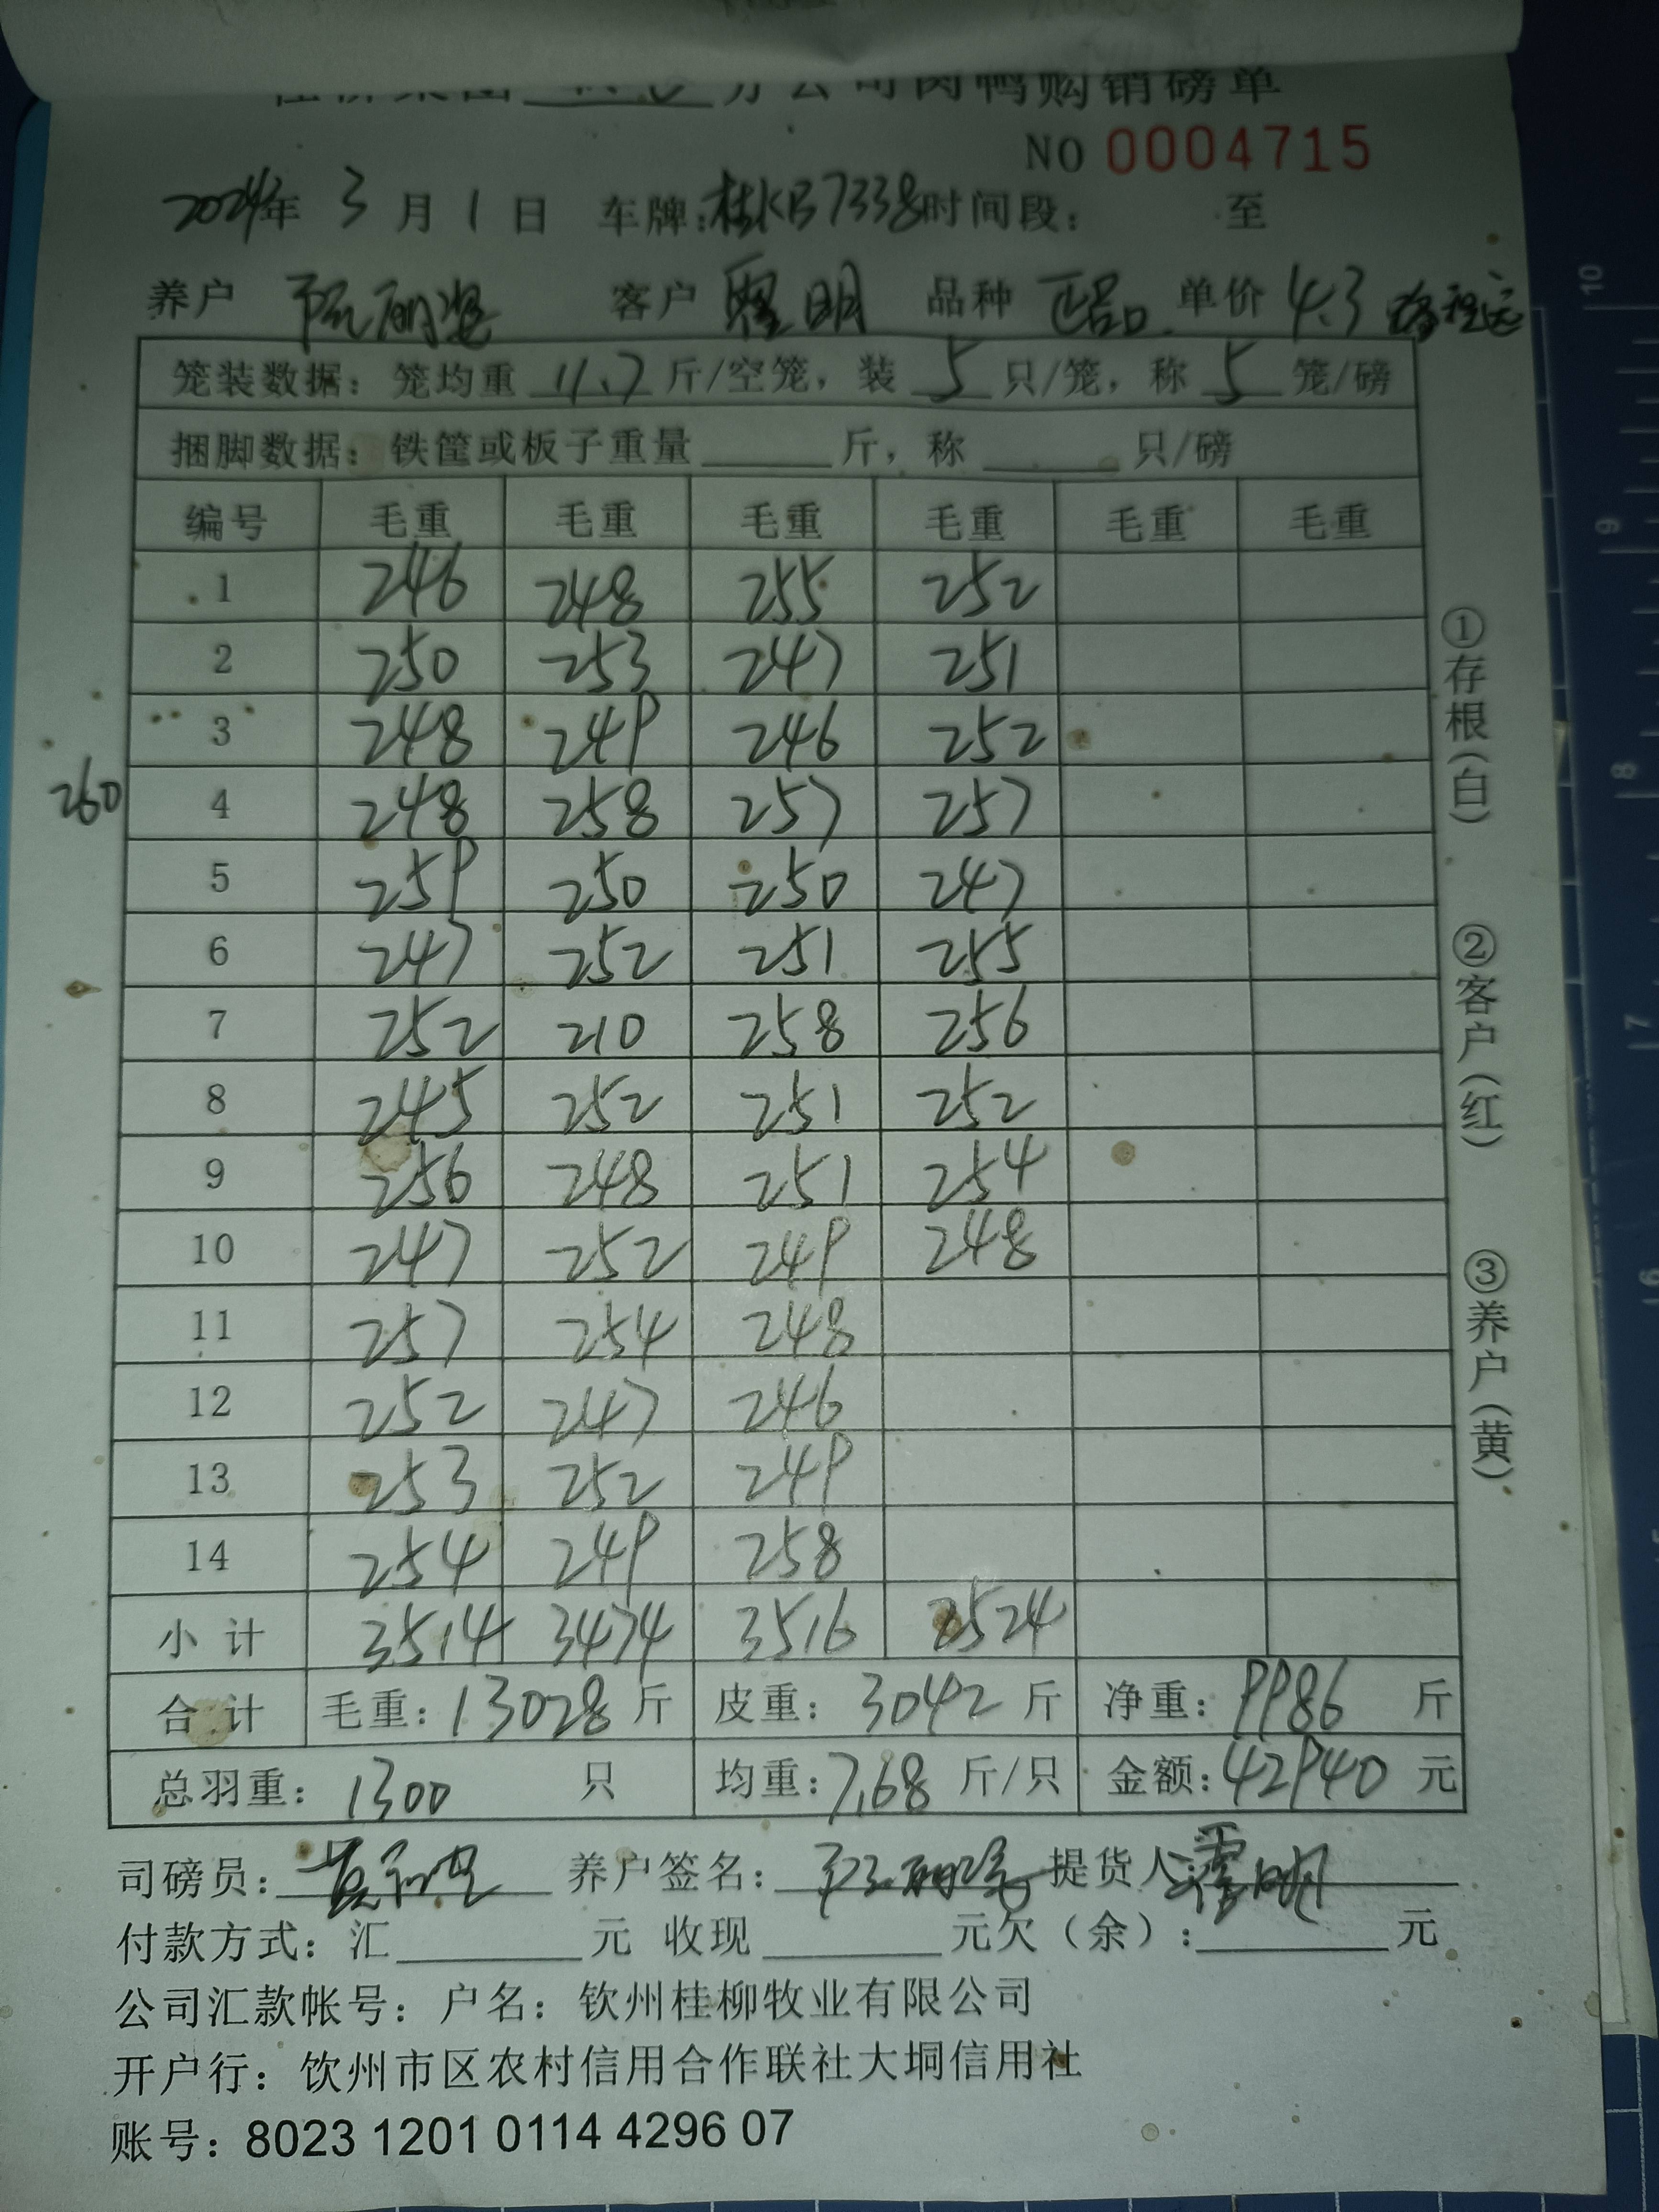 分公司肉鸭购销磅单
NO 0004715
2024年 3 月 1 日 车牌:桂KB7338 时间段: 至
养户 阮丽 客户 明 品种 正品 单价 4.3
笼装数据: 笼均重 11.7 斤/空笼, 装 5 只/笼, 称 5 笼/磅
捆脚数据: 铁筐或板子重量 斤, 称 只/磅
编号 毛重 毛重 毛重 毛重 毛重 毛重
1 246 248 255 252
2 250 253 247 251
3 248 249 246 252
260 4 248 258 257 257
5 259 250 250 247
6 247 252 251 255
7 252 210 258 256
8 245 252 251 252
9 256 248 251 254
10 247 252 249 248
11 257 254 248
12 252 247 246
13 253 252 249
14 254 249 258
小计 3514 3474 3516 2524
合计 毛重: 13028 斤 皮重: 3042 斤 净重: 9986 斤
总羽重: 1300 只 均重: 7.68 斤/只 金额: 42940 元
司磅员: 养户签名: 提货人: 明
付款方式: 汇 元 收现 元欠(余): 元
公司汇款帐号: 户名: 钦州桂柳牧业有限公司
开户行: 钦州市区农村信用合作联社大垌信用社
账号: 8023 1201 0114 4296 07
①存根(白)
②客户(红)
③养户(黄)
10
9
8
7
6